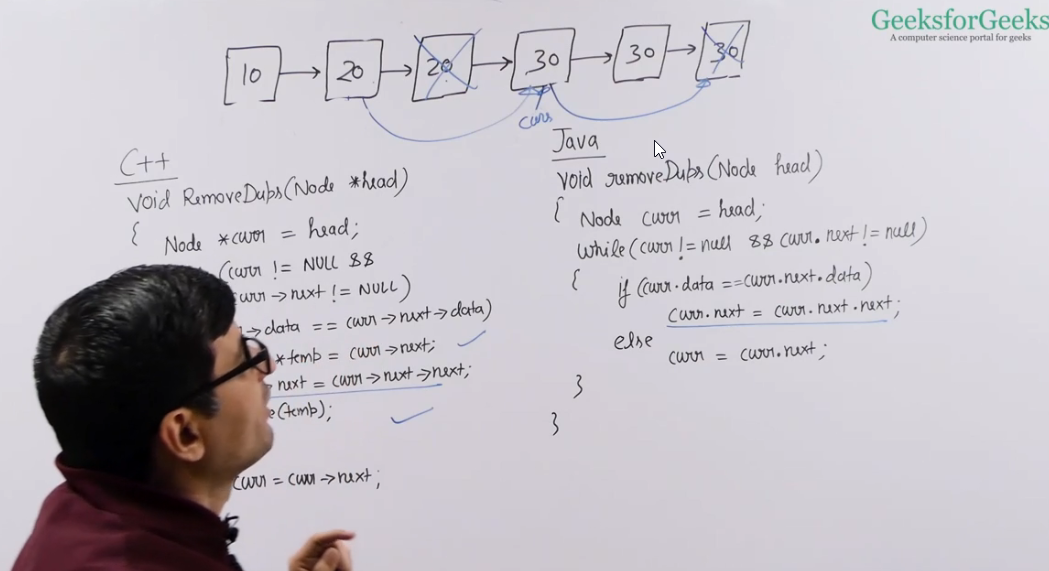 GeeksforGeeks
A computer science portal for geeks
10 20 20 30 30 30
curr
C++
void RemoveDups(Node *head)
{ Node *curr = head;
(curr != NULL &&
curr → next != NULL)
→ data == curr → next → data)
*temp = curr → next;
next = curr → next → next;
(temp);
curr = curr → next;
Java
void removeDups(Node head)
{ Node curr = head;
while(curr != null && curr.next != null)
{ if (curr.data == curr.next.data)
curr.next = curr.next.next;
else
curr = curr.next;
}
}